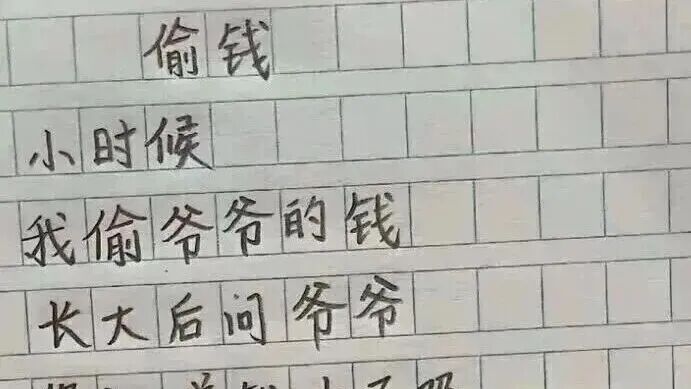 偷钱
小时候
我偷爷爷的钱
长大后问爷爷